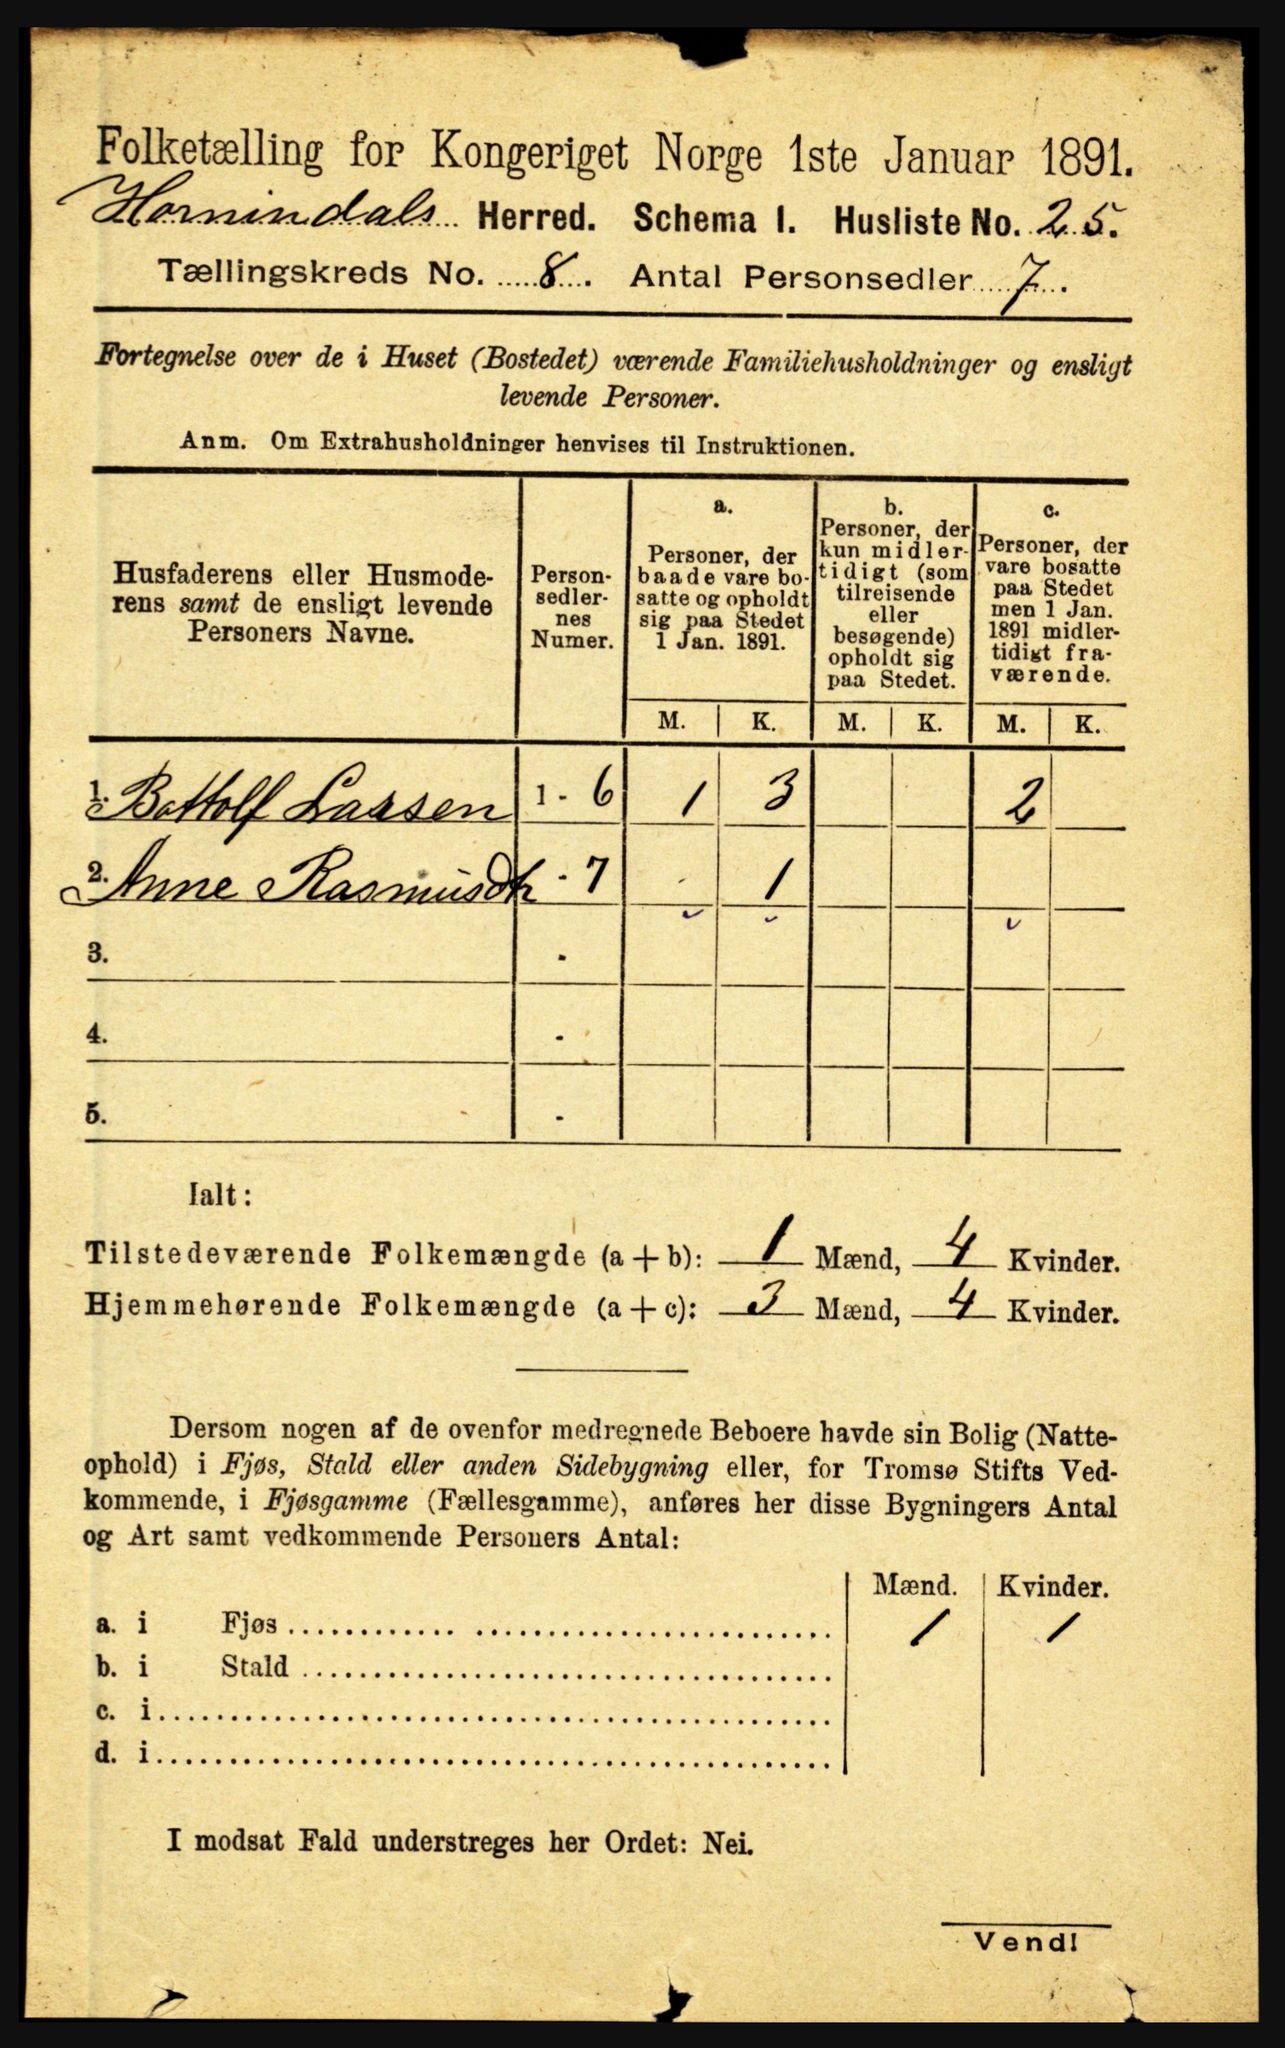 Folketælling for Kongeriget Norge 1ste Januar 1891.
Hornindals Herred. Schema I. Husliste No. 25.
Tællingskreds No. 8. Antal Personsedler 7.
Fortegnelse over de i Huset (Bostedet) værende Familiehusholdninger og ensligt
levende Personer.
Anm. Om Extrahusholdninger henvises til Instruktionen.
Husfaderens eller Husmode-
rens samt de ensligt levende
Personers Navne.
Person-
sedler-
nes
Numer.
a.
Personer, der
baade vare bo-
satte og opholdt
sig paa Stedet
1 Jan. 1891.
b.
Personer, der
kun midler-
tidigt (som
tilreisende
eller
besøgende)
opholdt sig
paa Stedet.
c.
Personer, der
vare bosatte
paa Stedet
men 1 Jan.
1891 midler-
tidigt fra-
værende.
M. K. M. K. M. K.
1. Bottolf Lassen 1 - 6 1 3 2
2. Anne Rasmusdtr - 7 - 1
3. -
4. -
5. -
Ialt:
Tilstedeværende Folkemængde (a + b): 1 Mænd, 4 Kvinder.
Hjemmehørende Folkemængde (a + c): 3 Mænd, 4 Kvinder.
Dersom nogen af de ovenfor medregnede Beboere havde sin Bolig (Natte-
ophold) i Fjøs, Stald eller anden Sidebygning eller, for Tromsø Stifts Ved-
kommende, i Fjøsgamme (Fællesgamme), anføres her disse Bygningers Antal
og Art samt vedkommende Personers Antal:
Mænd. Kvinder.
a. i Fjøs 1 1
b. i Stald
c. i
d. i
I modsat Fald understreges her Ordet: Nei.
Vend!